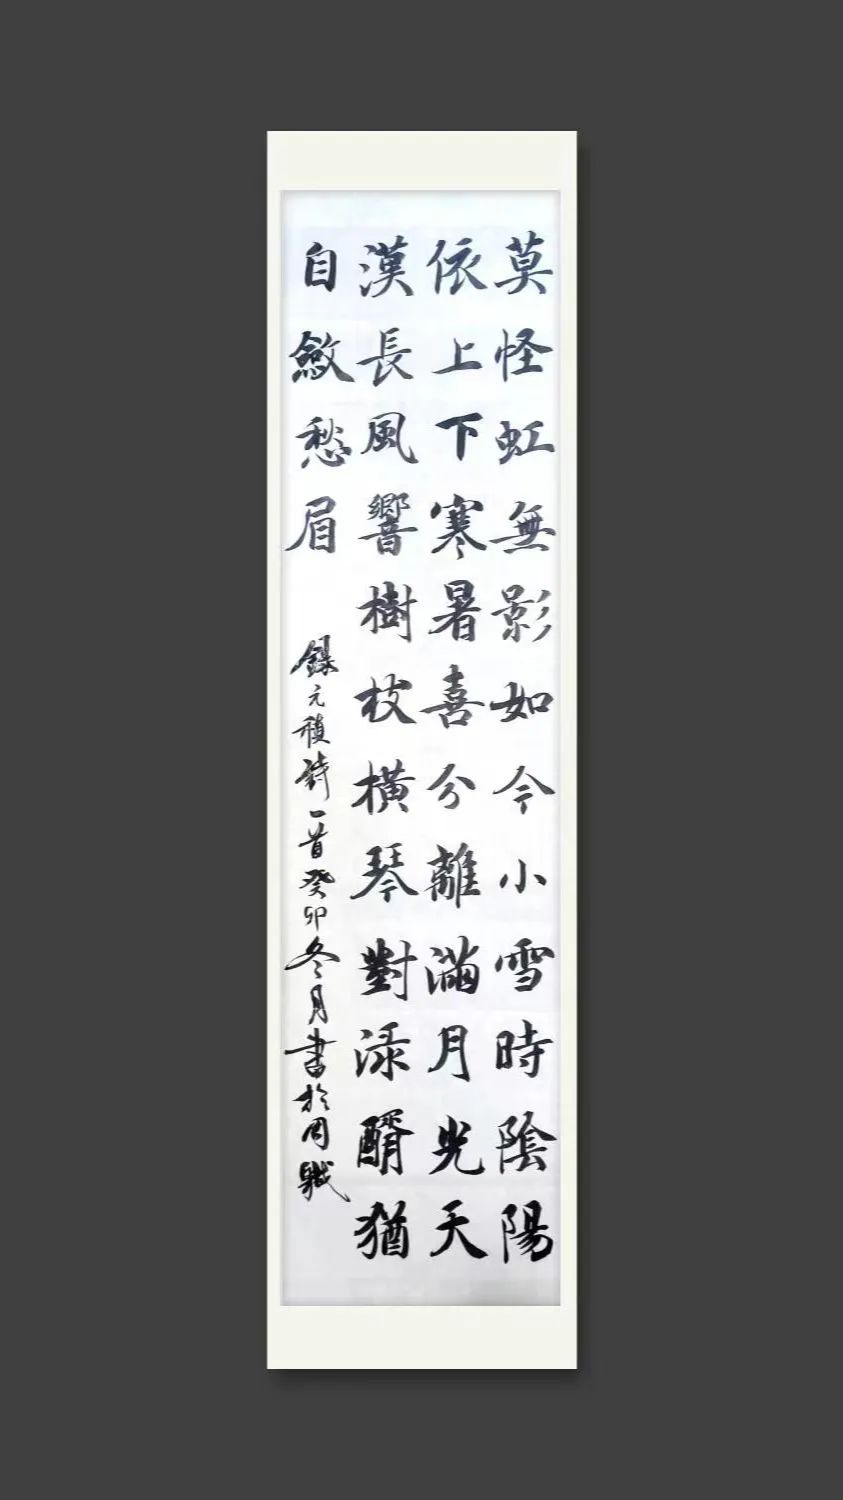 莫怪虹無影如今小雪時陰陽
依上下寒暑喜分離滿月光天
漢長風響樹枝橫琴對渌醑猶
自斂愁眉
錄元稹詩一首癸卯冬月書於